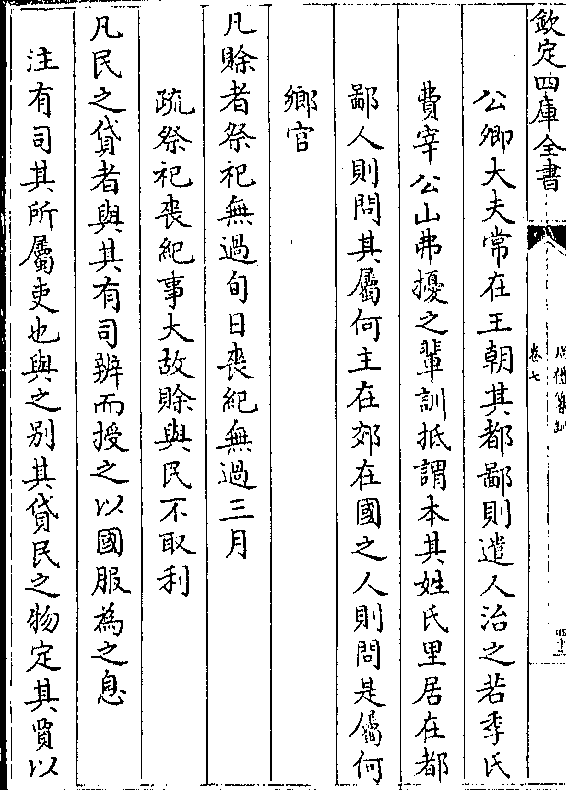 欽定四庫全書
卷七
公卿大夫常在王朝其都鄙則遣人治之若季氏
費宰公山弗擾之輩訓抵謂本其姓氏里居在都
鄙人則問其屬何主在郊在國之人則問是屬何
鄉官
凡賒者祭祀無過旬日喪紀無過三月
疏祭祀喪紀事大故賒與民不取利
凡民之貸者與其有司辨而授之以國服為之息
注有司其所屬吏也與之别其貸民之物定其賈以